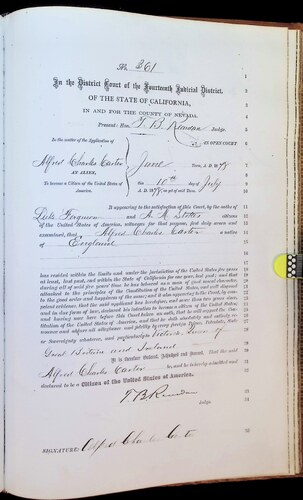 No 261
In the District Court of the Fourteenth Judicial District,
OF THE STATE OF CALIFORNIA,
IN AND FOR THE COUNTY OF NEVADA.
Present: Hon. T. B. Reardan Judge.
In the matter of the Application of
IN OPEN COURT
Alfred Charles Carter June Term, A. D. 1878
AN ALIEN,
To become a Citizen of the United States of America.
this 10th day of July
A. D. 1878
It appearing to the satisfaction of this Court, by the oaths of
citizens
of the United States of America, witnesses for that purpose, first duly sworn and
examined, that Alfred Charles Carter a native
of England
has resided within the limits and under the jurisdiction of the United States five years
at least, last past, and within the State of California for one year, last past; and that
during all of said five years' time he has behaved as a man of good moral character,
attached to the principles of the Constitution of the United States, and well disposed
to the good order and happiness of the same; and it also appearing to the Court, by com-
petent evidence, that the said applicant has heretofore, and more than two years since,
and in due form of law, declared his intention to become a citizen of the United States
and having now here before this Court taken an oath, that he will support the Con-
stitution of the United States of America, and that he doth absolutely and entirely re-
nounce and abjure all allegiance and fidelity to every foreign Prince, Potentate, State
or Sovereignty whatever, and particularly to Victoria Queen of
Great Britain and Ireland
It is therefore Ordered, Adjudged and Decreed, That the said
Alfred Charles Carter be, and he is hereby admitted and
declared to be a Citizen of the United States of America.
T B Reardan
Judge.
SIGNATURE: Alfred Charles Carter